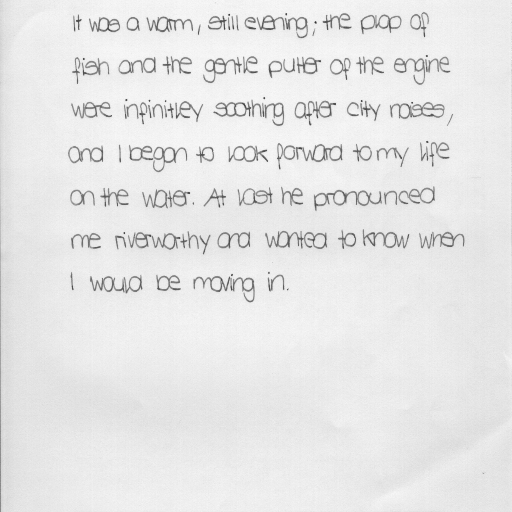 It was a warm, still evening; the plop of
fish and the gentle putter of the engine
were infinitley soothing after city noises,
and I began to look forward to my life
on the water. At last he pronounced
me riverworthy and wanted to know when
I would be moving in.